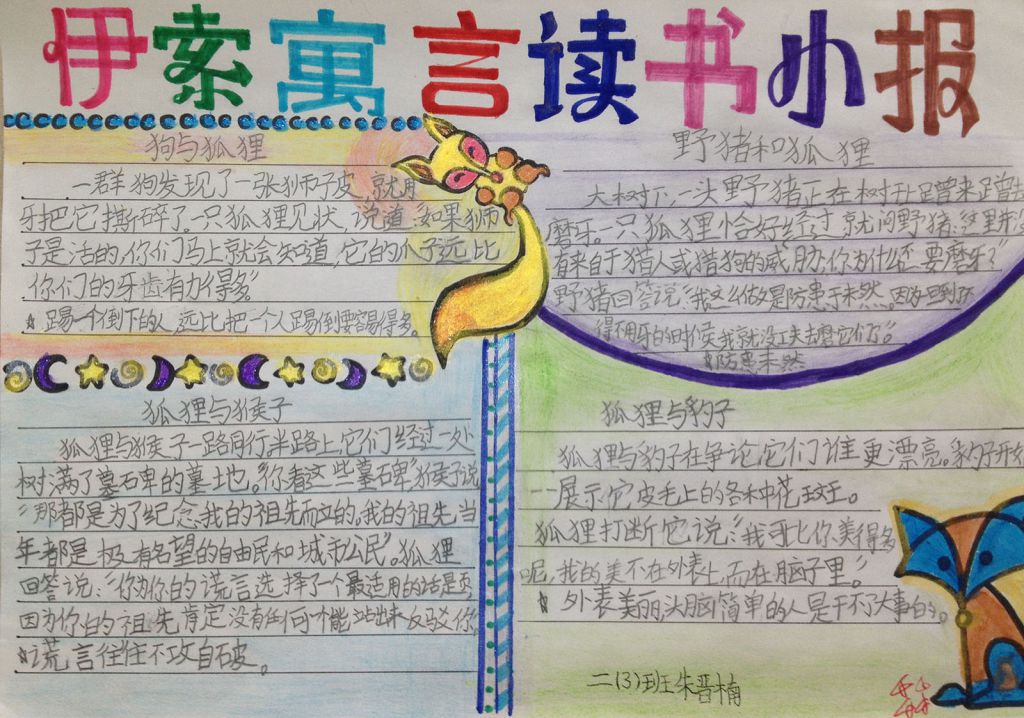 伊索寓言读书小报
狗与狐狸
一群狗发现了一张狮子皮,就用
牙把它撕碎了。一只狐狸见状,说道:如果狮
子是活的,你们马上就会知道,它的爪子远比
你们的牙齿有力得多"
踢一个倒下的人,远比把一个人踢倒要容易得多。
野猪和狐狸
大树下,一头野猪正在树干上蹭来蹭去
磨牙。一只狐狸恰好经过,就问野猪:这里并没
有来自于猎人或猎狗的威胁,你为什么要磨牙?"
野猪回答说:"我这么做是防患于未然。因为一旦到
得用牙的时候,我就没工夫去磨它们了。"
防患未然
狐狸与猴子
狐狸与猴子一路同行,半路上,它们经过一处
树满了墓石碑的墓地。"你看这些墓石碑"猴子说
"那都是为了纪念我的祖先而立的。我的祖先,当
年都是极有名望的自由民和城市公民"。狐狸
回答说:"你为你的谎言选择了个最适用的话题
因为你的祖先肯定没有任何个能站出来反驳你
谎言往往不攻自破。
狐狸与豹子
狐狸与豹子在争论,它们谁更漂亮。豹子开始
一一展示它皮毛上的各种花斑。
狐狸打断它说:"我可比你美得多
呢,我的美不在外表上,而在脑子里。"
外表美丽,头脑简单的人是干不了大事的。
二(3)班朱晋楠